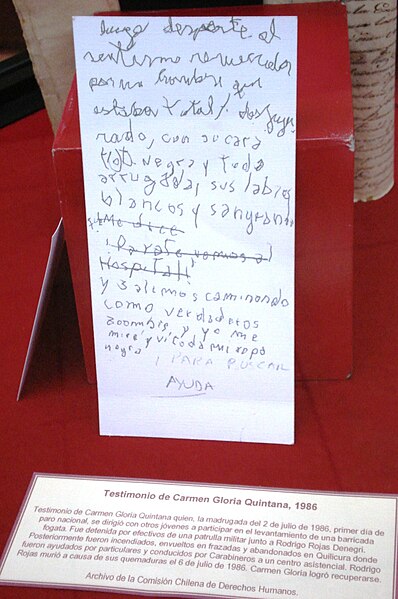 luego desperte al
sentirme remecida
por un hombre que
estaba total/. desfigu
rado, con su cara
tot. negra y toda
arrugada, sus labios
blancos y sangrando
me dice
¡Parate, vamos al
Hospital!
y salimos caminando
como verdaderos
zoombis y yo me
mire y vi toda mi ropa
negra
¡ PARA BUSCAR
AYUDA
Testimonio de Carmen Gloria Quintana, 1986
Testimonio de Carmen Gloria Quintana quien, la madrugada del 2 de julio de 1986, primer día de
paro nacional, se dirigió con otros jóvenes a participar en el levantamiento de una barricada
fogata. Fue detenida por efectivos de una patrulla militar junto a Rodrigo Rojas Denegri.
Posteriormente fueron incendiados, envueltos en frazadas y abandonados en Quilicura donde
fueron ayudados por particulares y conducidos por Carabineros a un centro asistencial. Rodrigo
Rojas murió a causa de sus quemaduras el 6 de julio de 1986. Carmen Gloria logró recuperarse.
Archivo de la Comisión Chilena de Derechos Humanos.